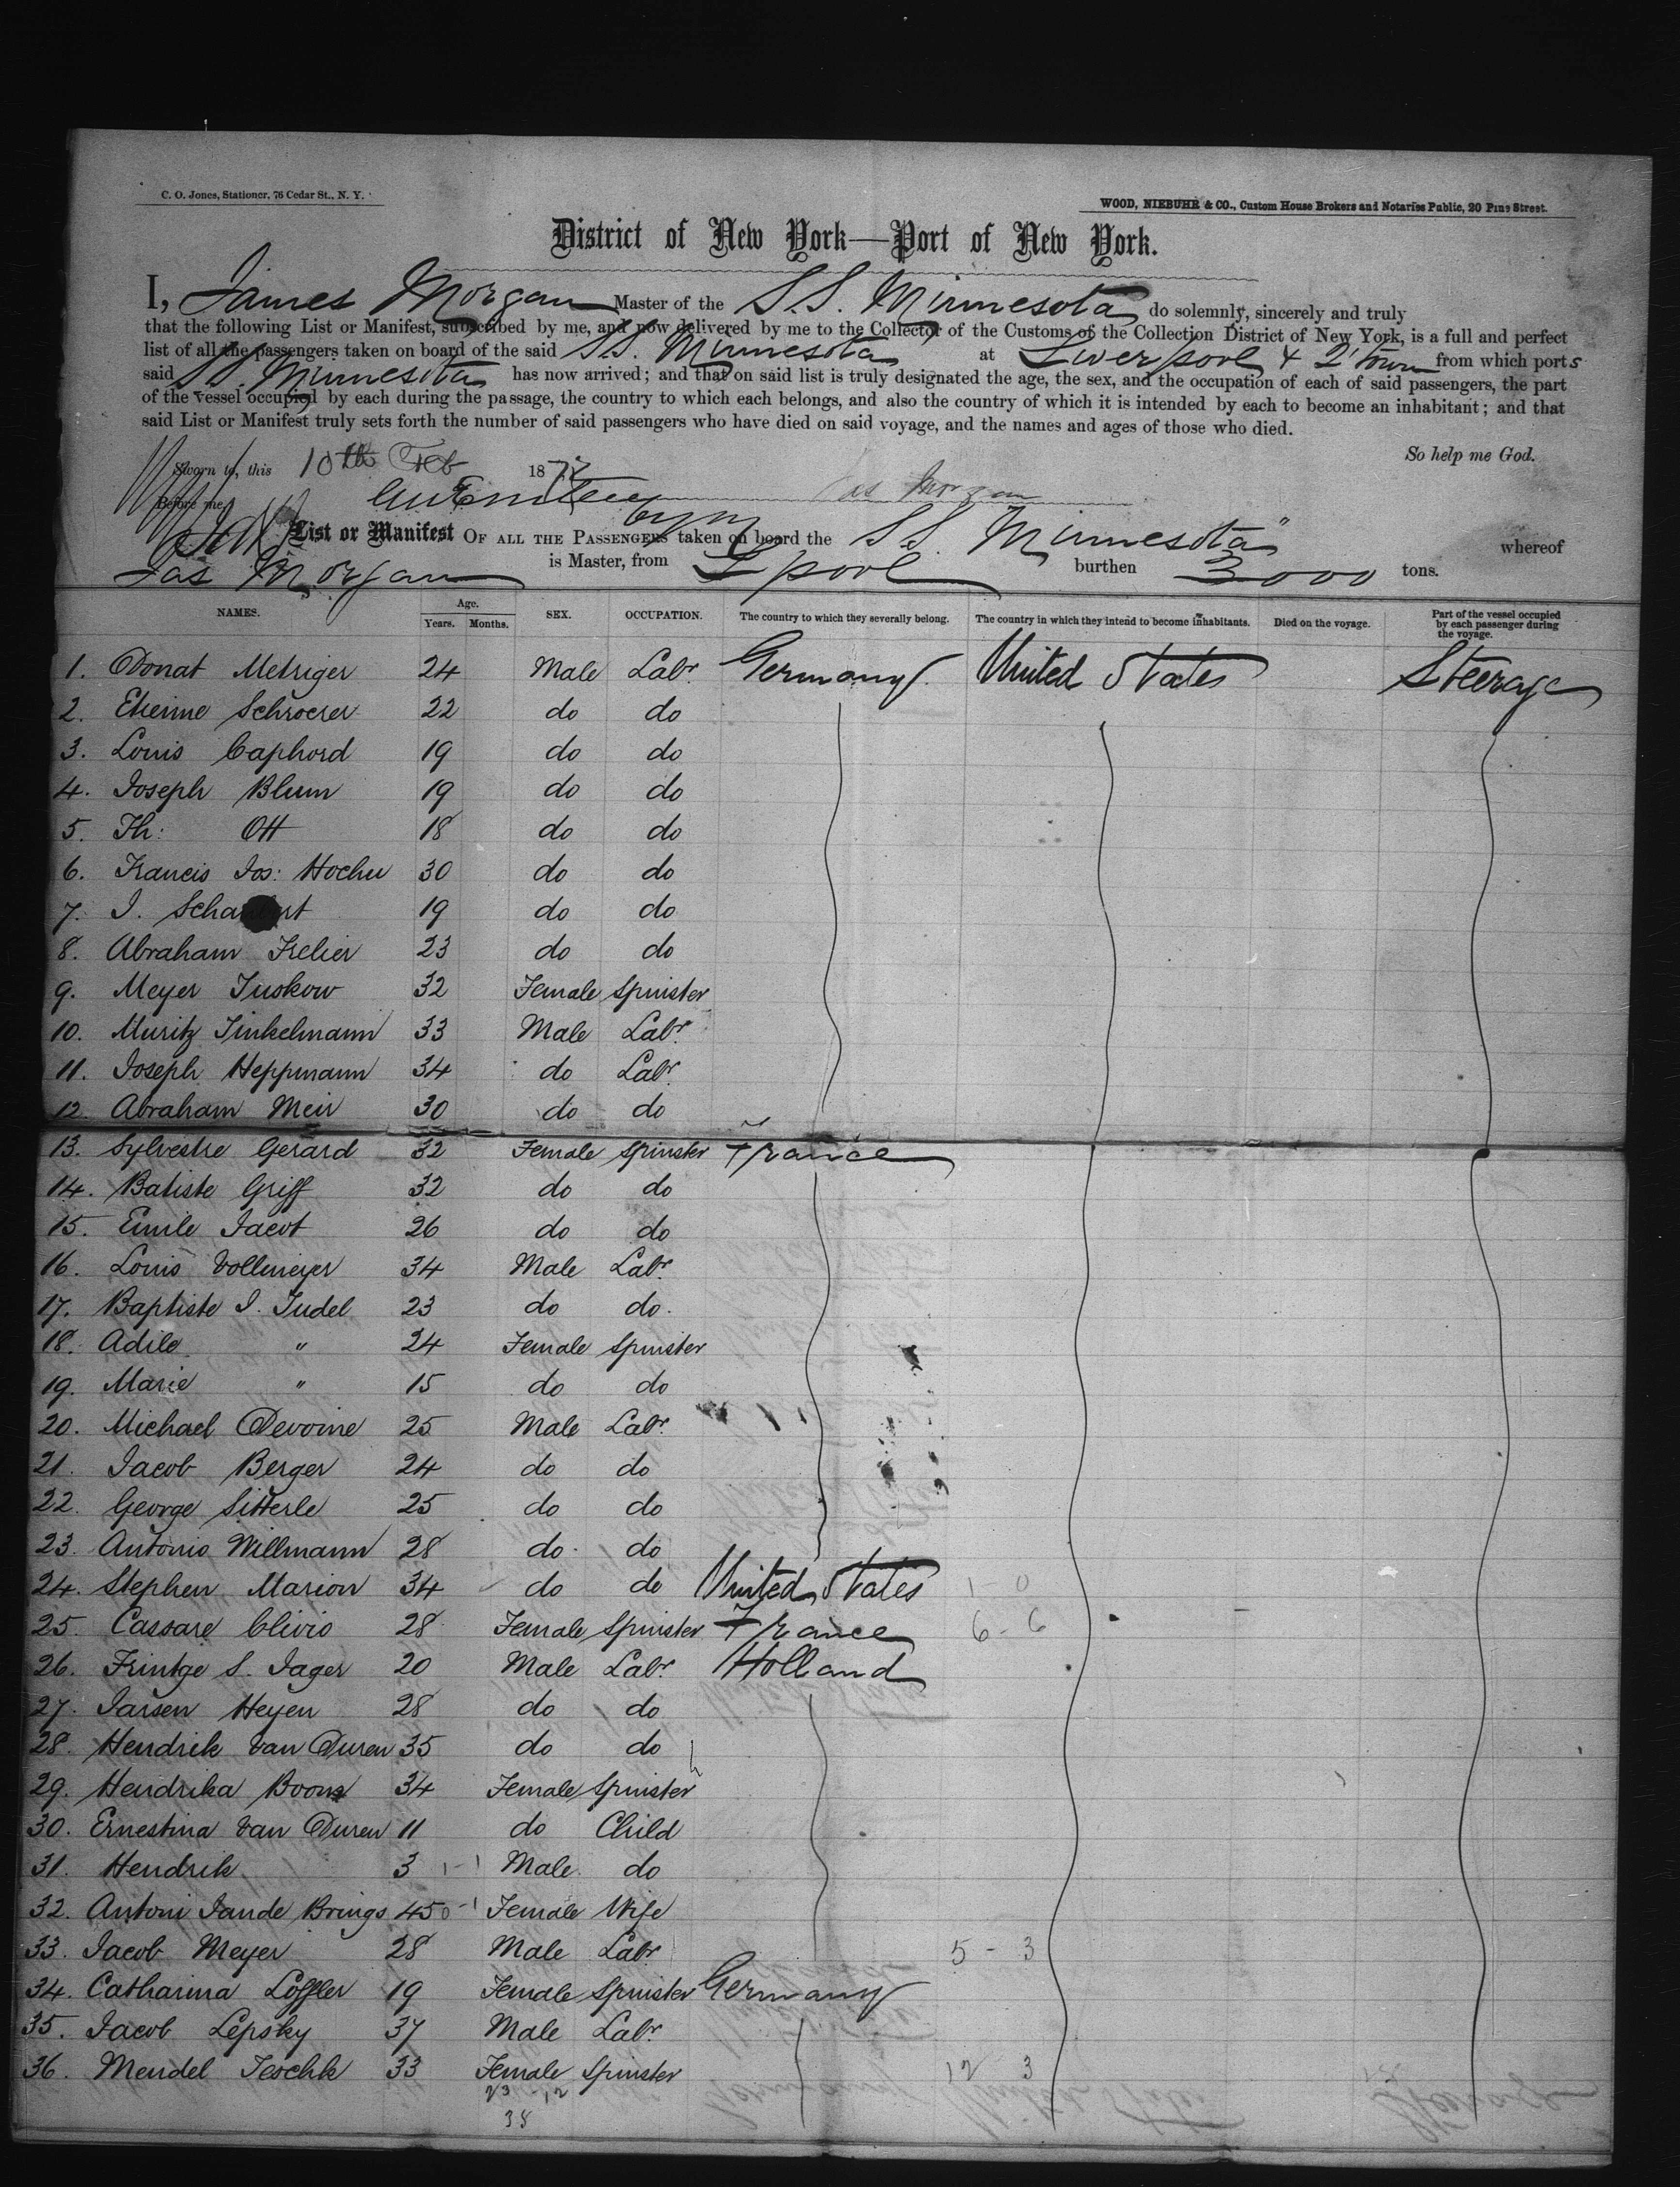 C. O. Jones, Stationer, 76 Cedar St., N. Y.
WOOD, NIEBUHR & CO., Custom House Brokers and Notaries Public, 20 Pine Street.
District of New York—Port of New York.
I, James Morgan Master of the S.S. Minnesota do solemnly, sincerely and truly
that the following List or Manifest, subscribed by me, and now delivered by me to the Collector of the Customs of the Collection District of New York, is a full and perfect
list of all the passengers taken on board of the said S.S. Minnesota at Liverpool & Q'town from which ports
said S.S. Minnesota has now arrived; and that on said list is truly designated the age, the sex, and the occupation of each of said passengers, the part
of the vessel occupied by each during the passage, the country to which each belongs, and also the country of which it is intended by each to become an inhabitant; and that
said List or Manifest truly sets forth the number of said passengers who have died on said voyage, and the names and ages of those who died.
So help me God.
Sworn to, this 10th Feb 1872
Before me, Jas Morgan
List or Manifest OF ALL THE PASSENGERS taken on board the S.S. Minnesota" whereof
Jas Morgan is Master, from L'pool burthen 3000 tons.
NAMES. Age. Years. Months. SEX. OCCUPATION. The country to which they severally belong. The country in which they intend to become inhabitants. Died on the voyage. Part of the vessel occupied by each passenger during the voyage.
1. Donat Metriger 24 Male Labr. Germany United States Steerage
2. Etienne Schroerer 22 do do
3. Louis Caphord 19 do do
4. Joseph Blum 19 do do
5. Th: Ott 18 do do
6. Francis Jos: Hocher 30 do do
7. J. 19 do do
8. Abraham Frelier 23 do do
9. Meyer Tuskow 32 Female Spinster
10. Muritz Finkelmann 33 Male Labr.
11. Joseph Heppmann 34 do Labr.
12. Abraham Meir 30 do do
13. Sylvestre Gerard 32 Female Spinster France
14. Batiste Griff 32 do do
15. Emile Jacot 26 do do
16. Louis Vollmeyer 34 Male Labr.
17. Baptiste J. Judel 23 do do.
18. Adile " 24 Female Spinster
19. Marie " 15 do do
20. Michael Devoine 25 Male Labr.
21. Jacob Berger 24 do do
22. George Sitterle 25 do do
23. Antonio Willmann 28 do. do
24. Stephen Marion 34 do do United States 1 - 0
25. Cassare Clivio 28 Female Spinster France 6 - 6
26. Frintge S. Jager 20 Male Labr. Holland
27. Jarsen Heyen 28 do do
28. Hendrik Van Duren 35 do do
29. Hendrika Boom 34 Female Spinster
30. Ernestina Van Duren 11 do Child
31. Hendrik 3 1-1 Male. do
32. Antoni Jande Brings 45 0-1 Female Wife
33. Jacob Meyer 28 Male Labr. 5 - 3
34. Catharina Löffler 19 Female Spinster Germany
35. Jacob Lepsky 37 Male Labr.
36. Mendel Jeschk 33 Female Spinster 12 3
23 - 12
38